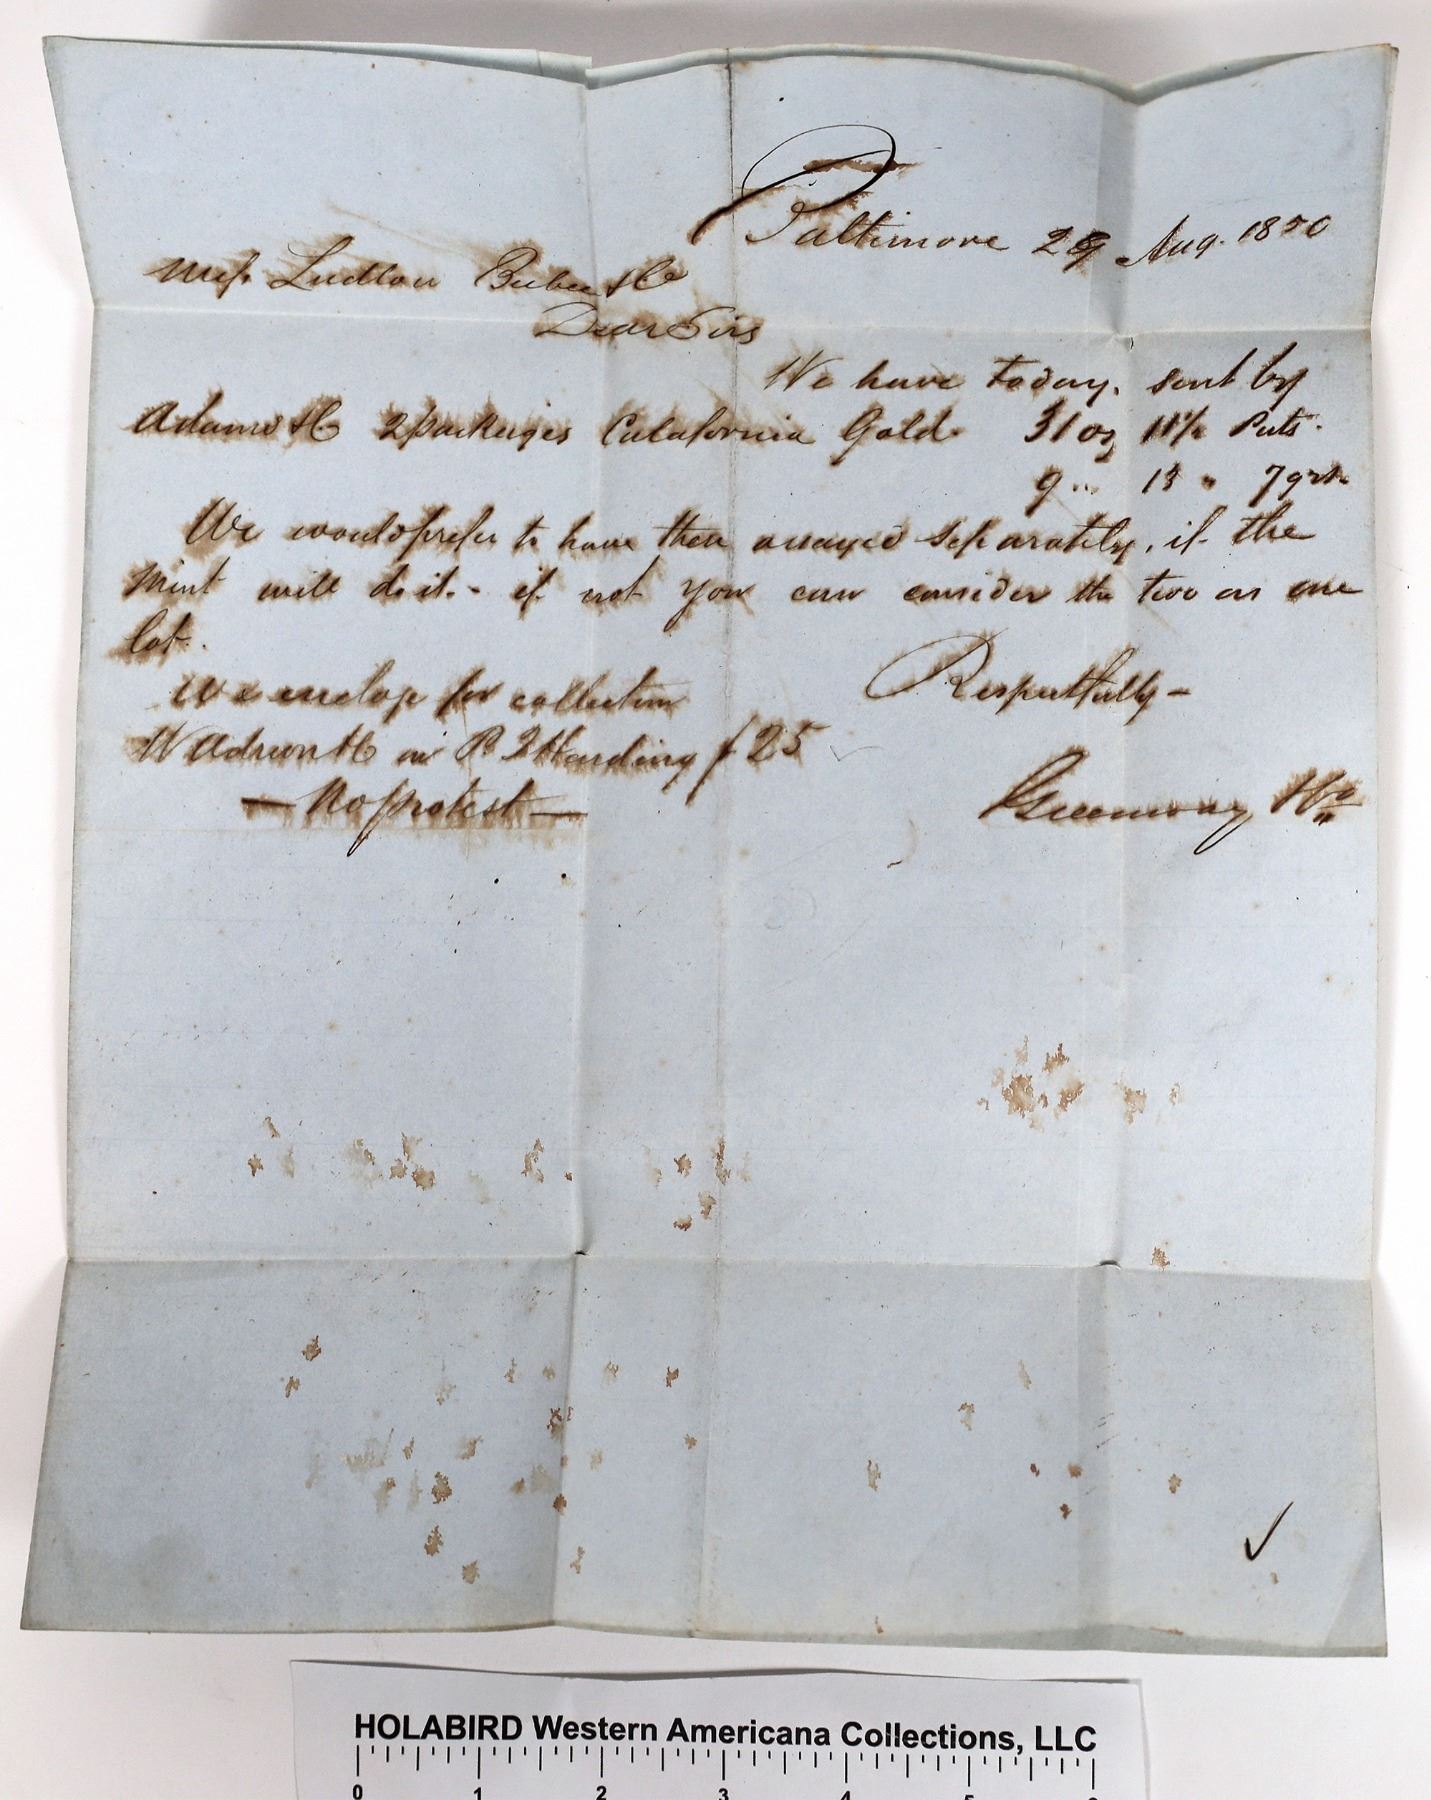 Baltimore 29 Aug. 1850
Mess. Ludlow Beebee & Co
Dear Sirs
We have today. sent by
Adams & Co 2 packages Calafornia Gold 31 oz 11½ Pwts.
9 " 13 " 7 grs
We would prefer to have them assayed separately, if the
Mint will do it. - if not you can consider the two as one
lot.
We enclose for collection
Respectfully -
W Adams & Co on P Harding $25
Greenway & Co
— No protest —
HOLABIRD Western Americana Collections, LLC
0 1 2 3 4 5